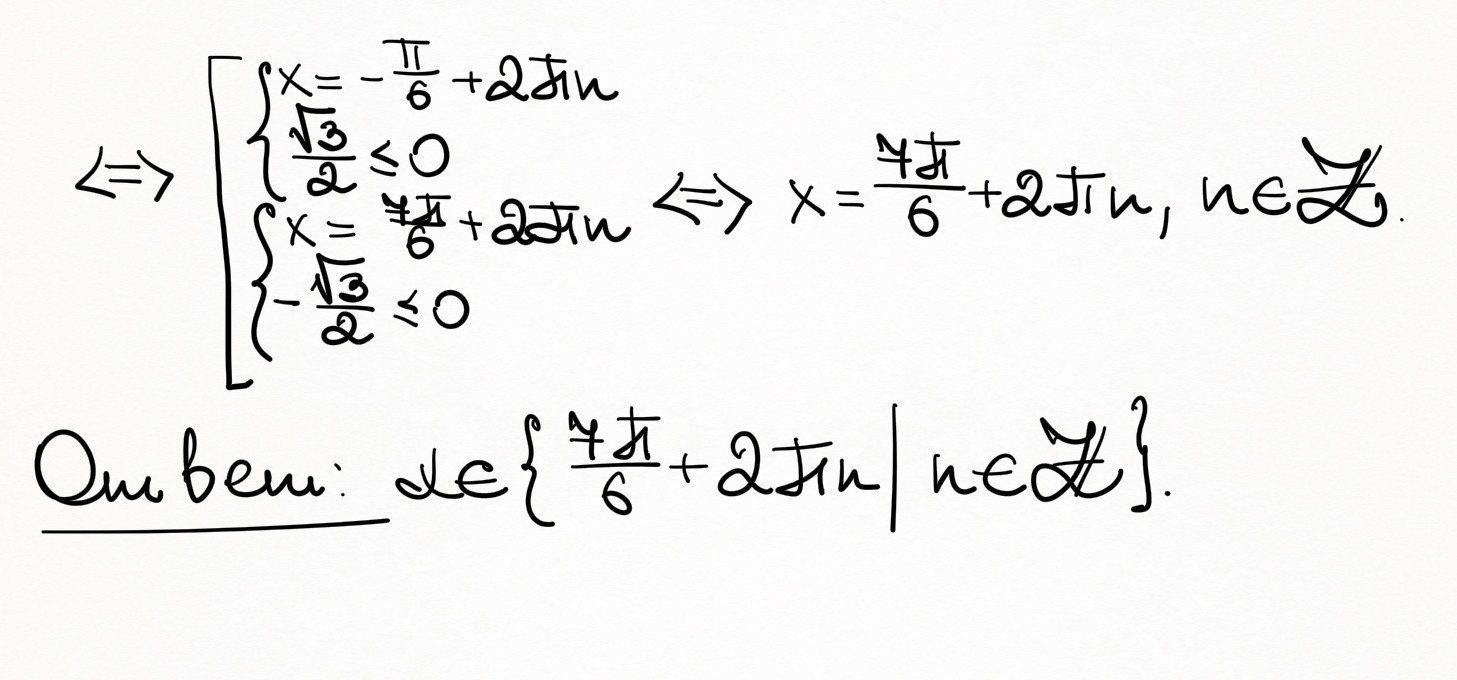 ⇔ [ { x = -π/6 + 2πn
√3/2 ≤ 0
{ x = 7π/6 + 2πn
-√3/2 ≤ 0
⇔ x = 7π/6 + 2πn, n∈ℤ.
Ответ: x∈{7π/6 + 2πn | n∈ℤ}.